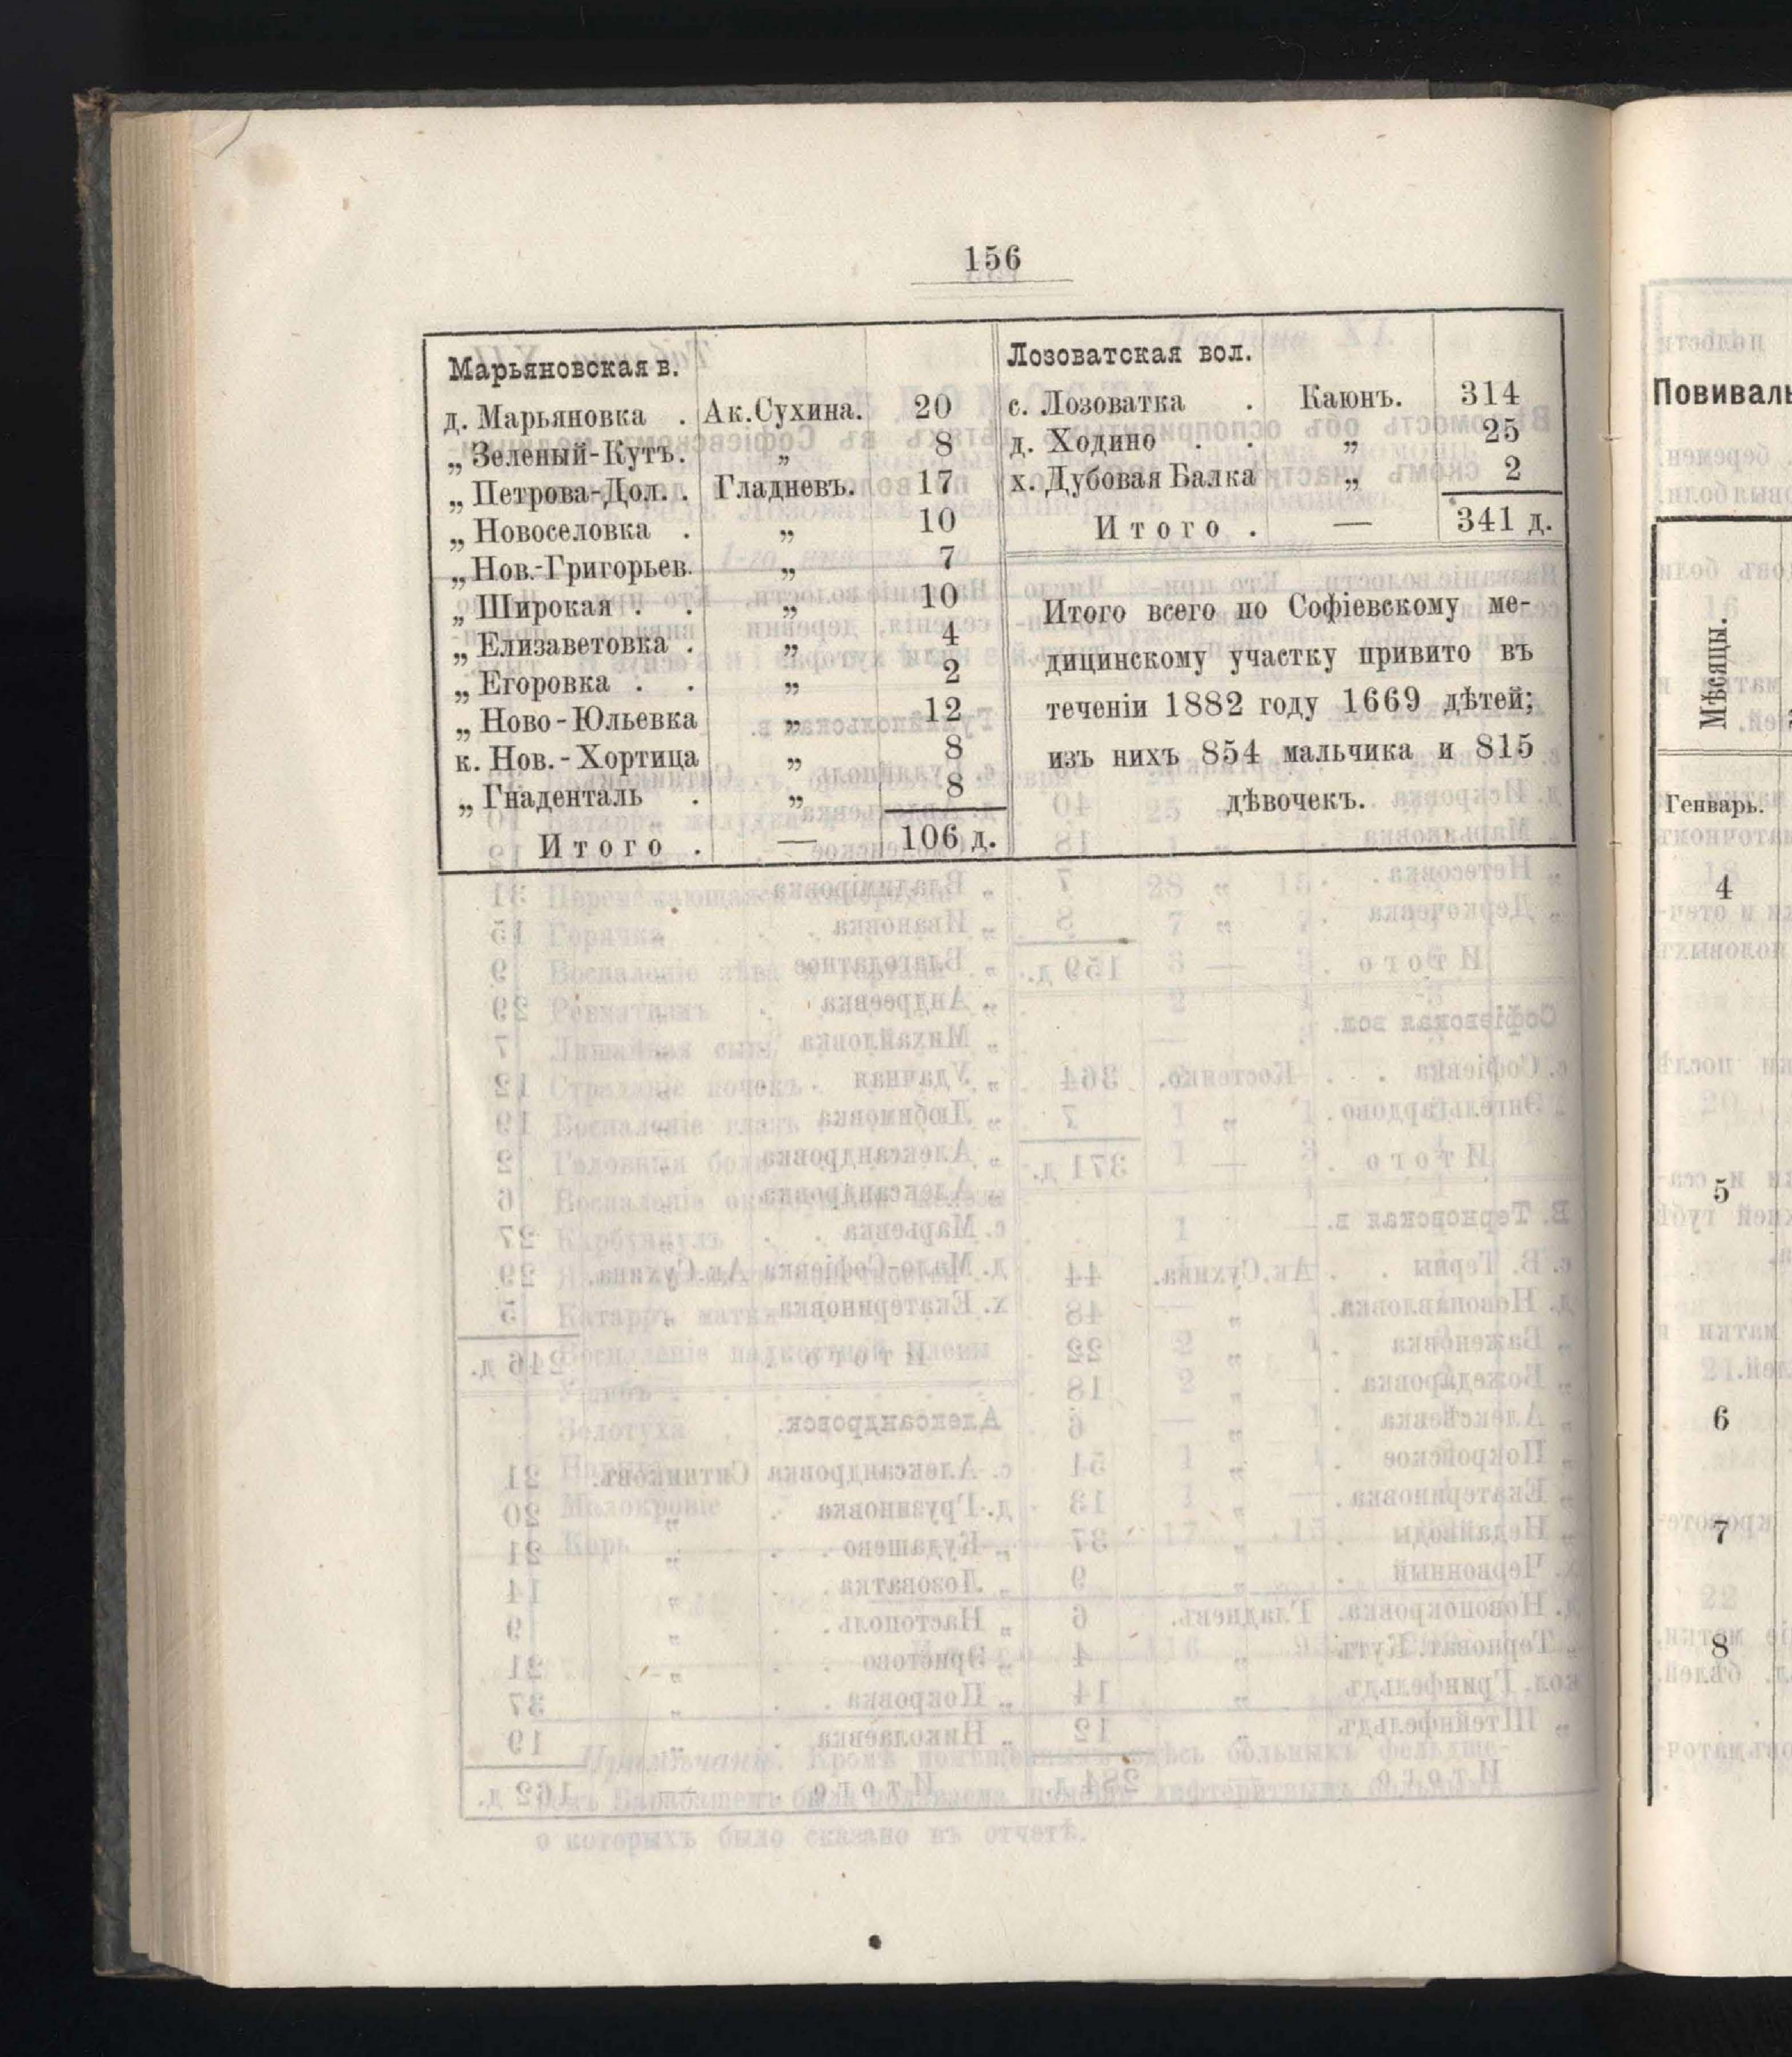 156
Марьяновская в.
д. Марьяновка . Ак.Сухина. 20
„ Зеленый-Кутъ. „ 8
„ Петрова-Дол. . Гладневъ. 17
„ Новоселовка . „ 10
„ Нов.-Григорьев. „ 7
„ Широкая . . „ 10
„ Елизаветовка . „ 4
„ Егоровка . . „ 2
„ Ново-Юльевка „ 12
к. Нов.-Хортица „ 8
„ Гнаденталь . „ 8
Итого . — 106 д.
Лозоватская вол.
с. Лозоватка . Каюнъ. 314
д. Ходино . . „ 25
х. Дубовая Балка „ 2
Итого . — 341 д.
Итого всего по Софіевскому ме-
дицинскому участку привито въ
теченіи 1882 году 1669 дѣтей;
изъ нихъ 854 мальчика и 815
дѣвочекъ.
Повиваль
Мѣсяцы.
Генварь.
4
5
6
7
8